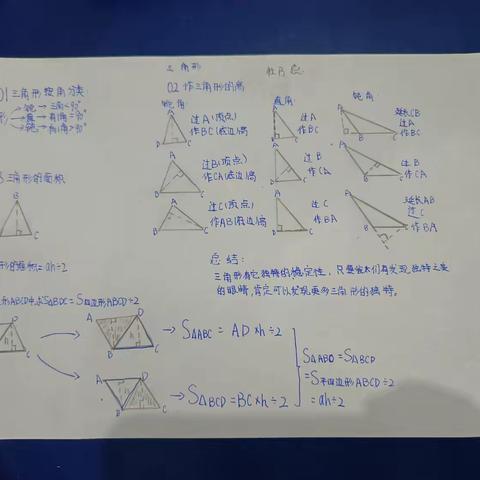 三角形
01三角形按角分类
形
锐→三角<90°
直→有1角=90°
钝→有1角>90°
02作三角形的高
锐角
过A(顶点)
作BC(底边)高
过B(顶点)
作CA(底边)高
过C(顶点)
作AB(底边)高
直角
过A
作BC
过B
作CA
过C
作BA
钝角
延长CB
过A
作BC
过B
作CA
延长AB
过C
作BA
三角形的面积
A
B
C
D
形的面积=ah÷2
形ABCD中,S△BDC=S四边形ABCD÷2
总结:
三角形有它独特的稳定性,只要我们有发现独特之美
的眼睛,肯定可以发现更多三角形的独特。
→S△ABC=AD×h÷2
→S△BCD=BC×h÷2
S△ABD=S△BCD
=S平四边形ABCD÷2
=ah÷2